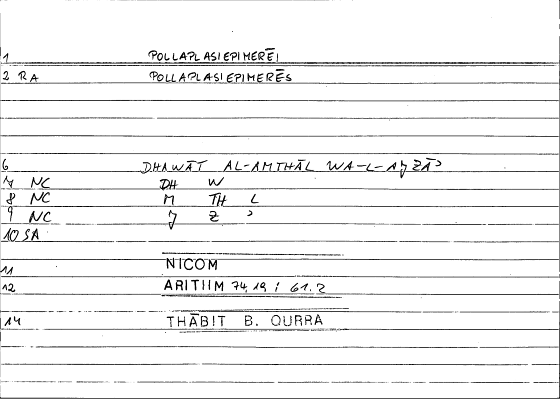 1 POLLAPLASIEPIMEREĨ
2 RA POLLAPLASIEPIMERĒS
6 DHAWĀT AL-AMTHĀL WA-L-AJZĀʾ
7 NC DH W
8 NC M TH L
9 NC J Z ʾ
10 SA
11 NICOM
12 ARITIIM 74,19 ; 61.2
14 THĀBIT B. QURRA